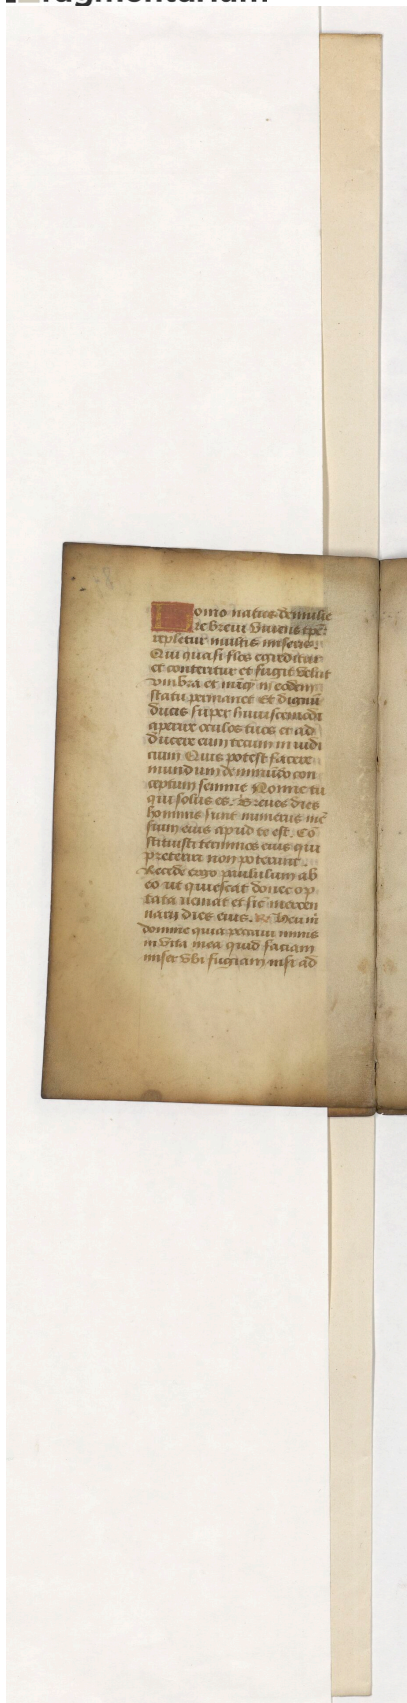 ragmentarium
omo natus de mulie
re brevi vivens tp̄e
repletur multis miserijs.
Qui quasi flos egreditur
et conteritur et fugit velut
umbra et nūq̄ in eodem
statu permanet Et dignū
ducis super huiuscemodi
aperire oculos tuos et ad
ducere eum tecum in iudi
cium Quis potest facere
mundum de īmūdo con
ceptum semine Nonne tu
qui solus es. Breves dies
hominis sunt numerus mē
sium eius apud te est. Cō
stituisti terminos eius qui
preterire non poterunt.
Recede ergo paululum ab
eo ut quiescat donec op
tata veniat et sic mercen
narij dies eius. R. Heu m̄
domine quia peccavi nimis
in vita mea quid faciam
miser ubi fugiam nisi ad